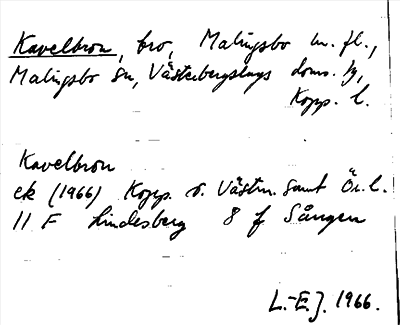 Kavelbron, bro, Malingsbo m. fl.,
Malingsbo sn, Västerbergslags doms. tg,
Kopp. l.
Kavelbron
ek (1966) Kopp. o. Västm. samt Ör. l.
11 F Lindesberg 8 f Sången
L.-E.J. 1966.